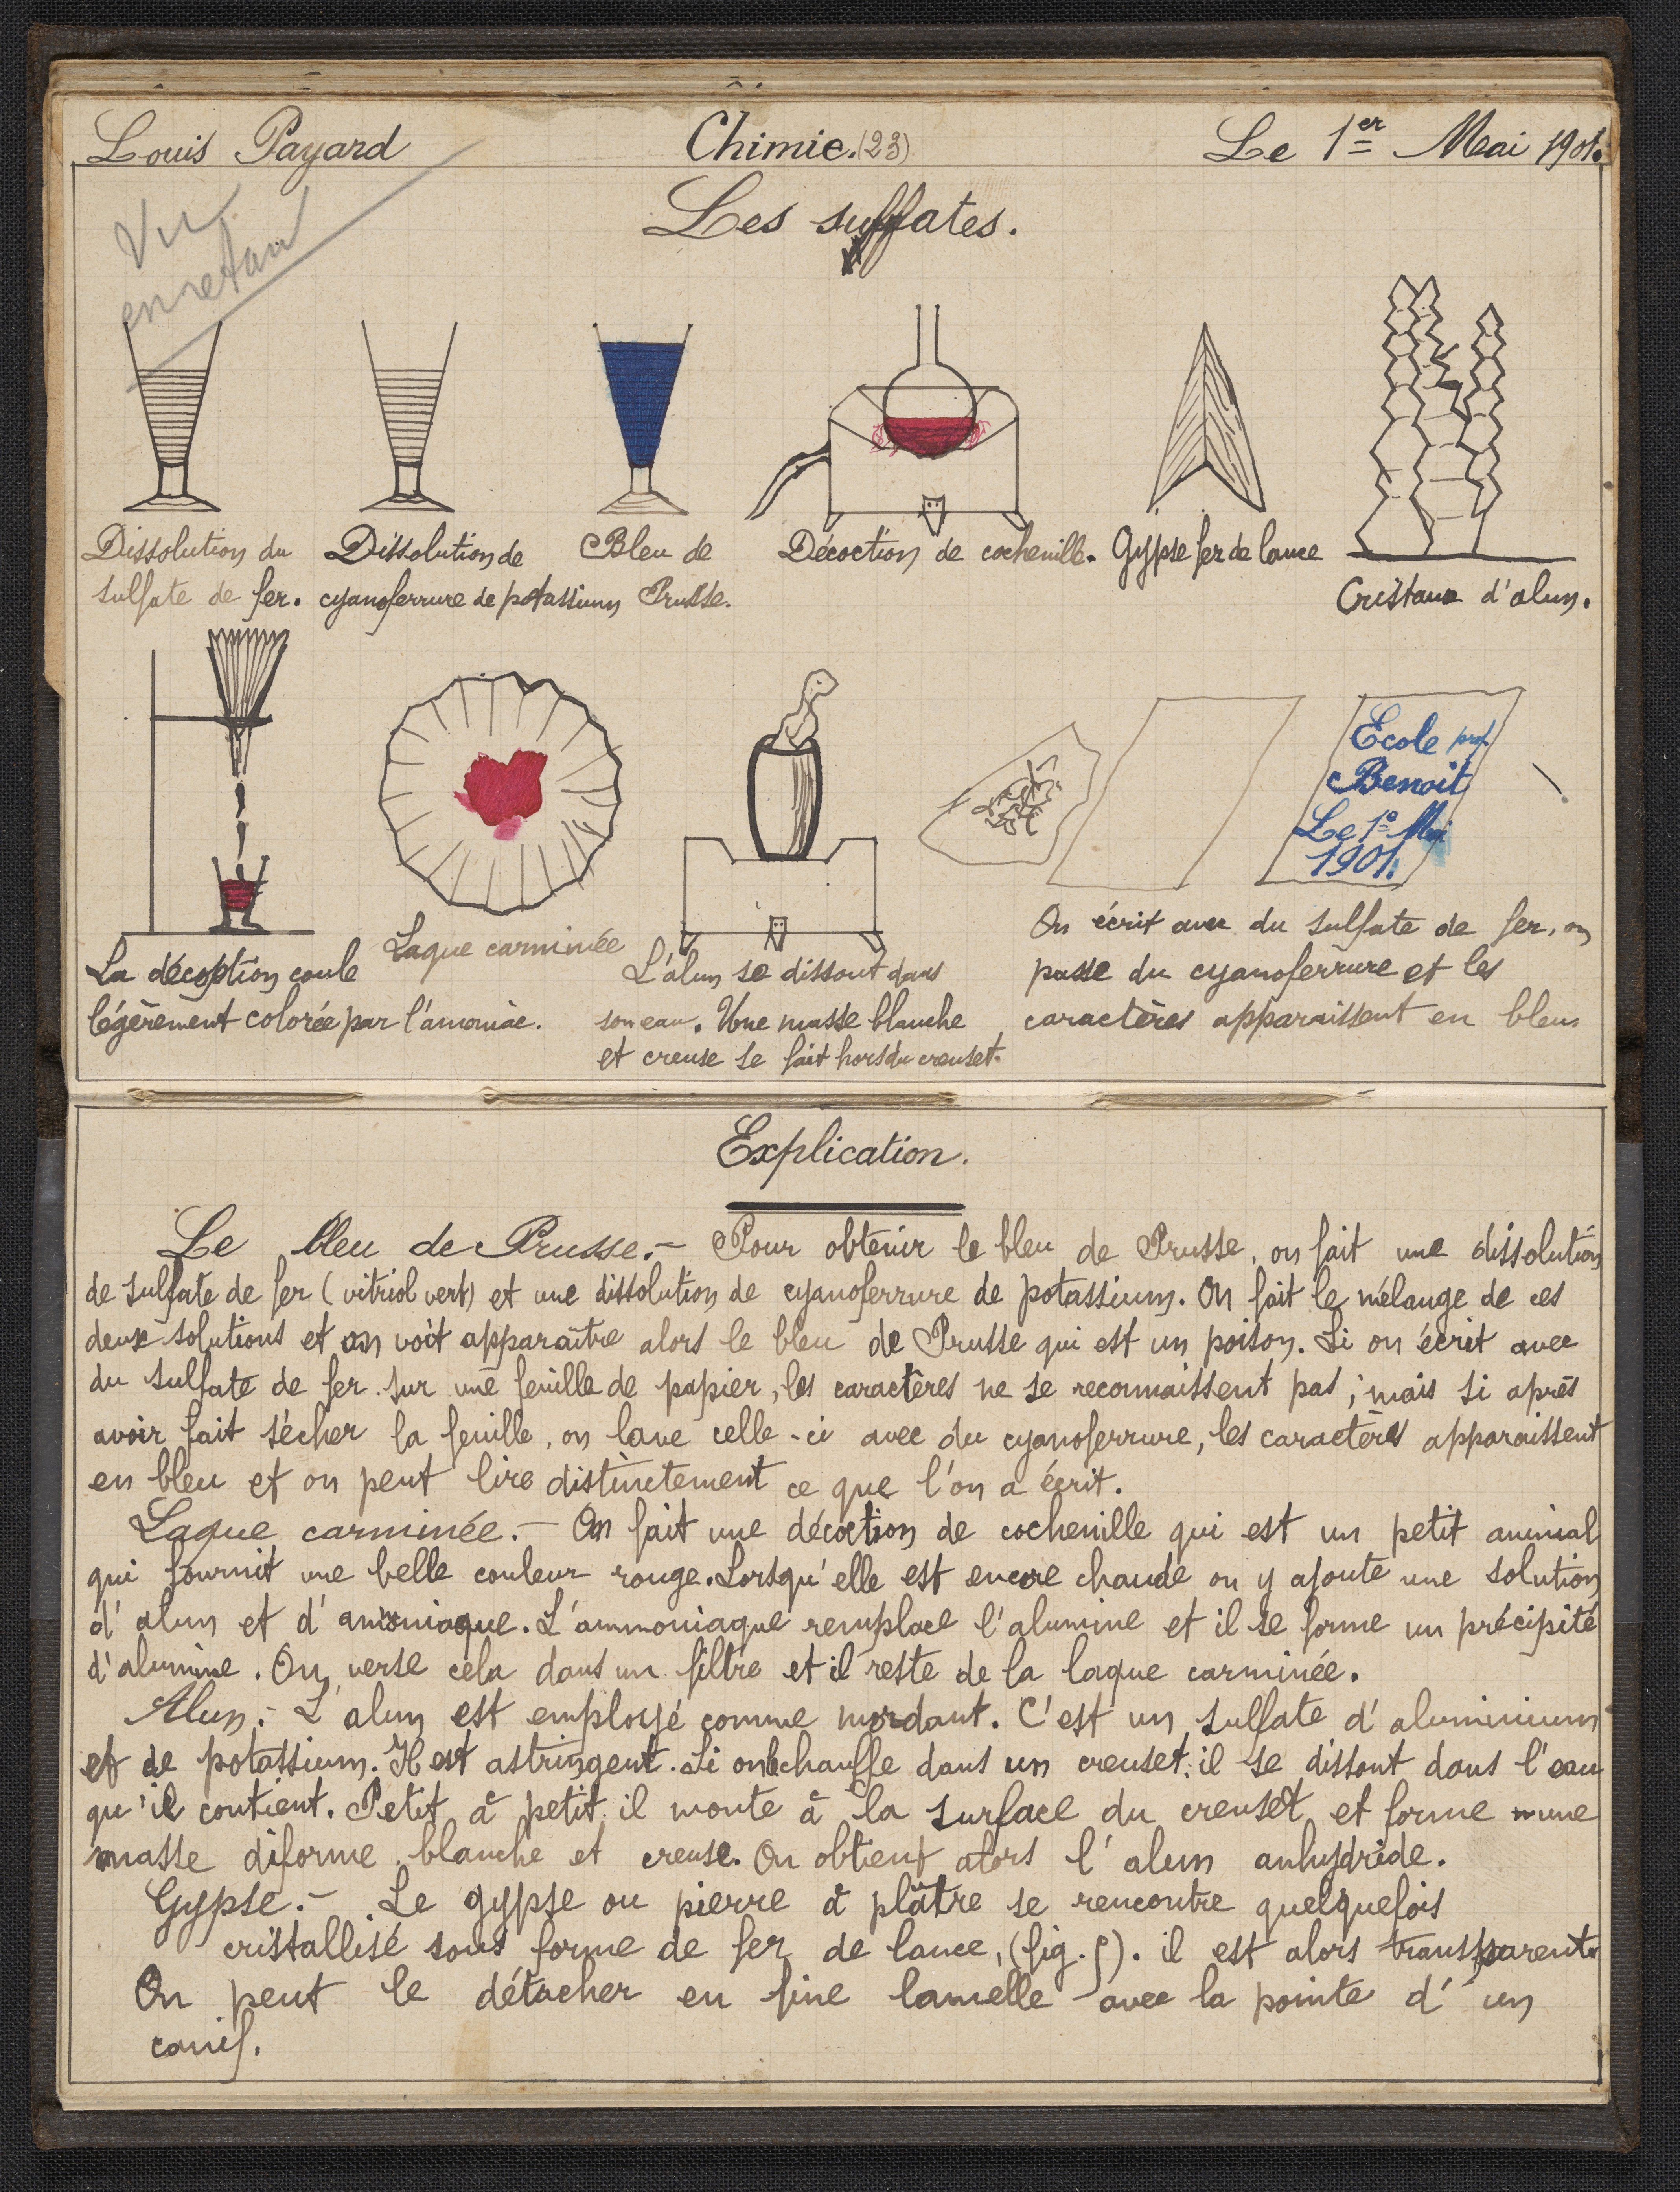 Louis Payard Chimie. (23) Le 1er Mai 1901.
Vu
en retard
Les sulfates.
Dissolution du
sulfate de fer.
Dissolution de
cyanoferrure de potassium
Bleu de
Prusse.
Décoction de cochenille.
Gypse fer de lance
Cristaux d'alun.
Ecole prof.
Benoit
Le 1e Mai
1901.
La décoction coule
légèrement colorée par l'amoniac.
Laque carminée
L'alun se dissout dans
son eau. Une masse blanche
et creuse se fait hors du creuset.
On écrit avec du sulfate de fer, on
passe du cyanoferrure et les
caractères apparaissent en bleu
Explication.
Le bleu de Prusse.- Pour obtenir le bleu de Prusse, on fait une dissolution
de sulfate de fer (vitriol vert) et une dissolution de cyanoferrure de potassium. On fait le mélange de ces
deux solutions et on voit apparaître alors le bleu de Prusse qui est un poison. Si on écrit avec
du sulfate de fer sur une feuille de papier, les caractères ne se reconnaissent pas; mais si après
avoir fait sécher la feuille, on lave celle-ci avec du cyanoferrure, les caractères apparaissent
en bleu et on peut lire distinctement ce que l'on a écrit.
Laque carminée.- On fait une décoction de cochenille qui est un petit animal
qui fournit une belle couleur rouge. Lorsqu'elle est encore chaude on y ajoute une solution
d'alun et d'ammoniaque. L'ammoniaque remplace l'alumine et il se forme un précipité
d'alumine. On verse cela dans un filtre et il reste de la laque carminée.
Alun.- L'alun est employé comme mordant. C'est un sulfate d'aluminium
et de potassium. Il est astringent. Si on chauffe dans un creuset, il se dissout dans l'eau
qu'il contient. Petit à petit il monte à la surface du creuset et forme une
masse diforme, blanche et creuse. On obtient alors l'alun anhydride.
Gypse.- Le gypse ou pierre à plâtre se rencontre quelquefois
cristallisé sous forme de fer de lance, (fig. 5). il est alors transparent.
On peut le détacher en fine lamelle avec la pointe d'un
canif.